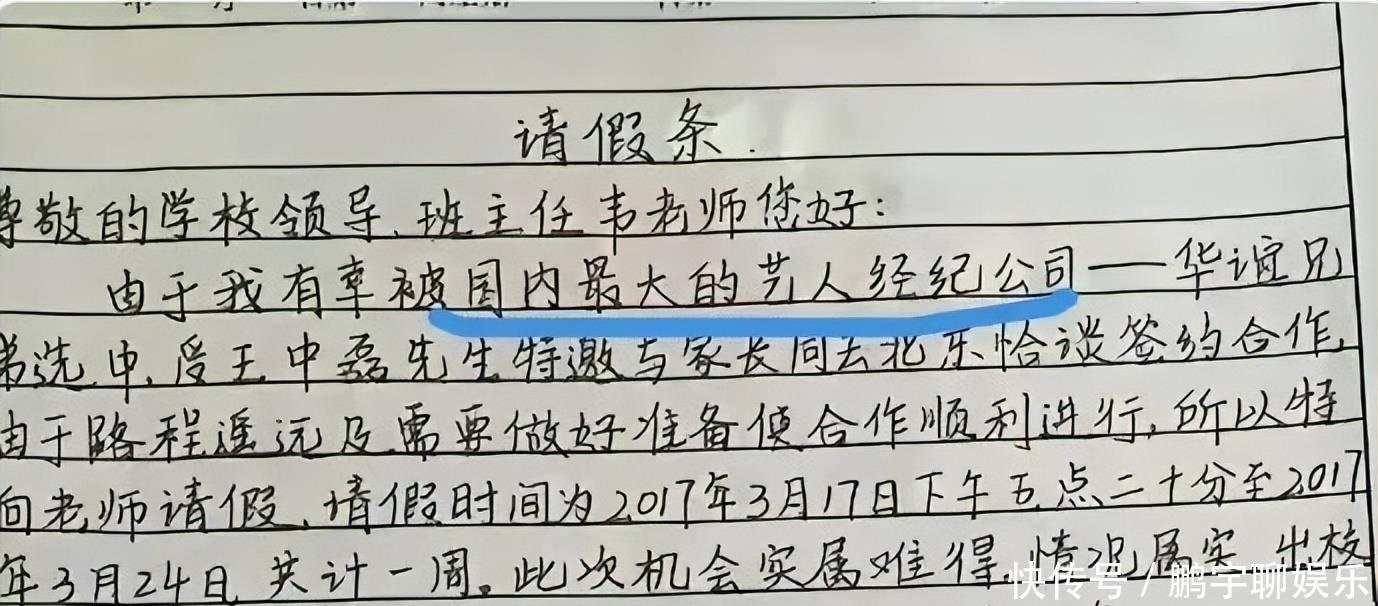 请假条.
尊敬的学校领导、班主任韦老师您好:
由于我有幸被国内最大的艺人经纪公司——华谊兄
弟选中,受王中磊先生特邀与家长同去北京恰谈签约合作,
由于路程遥远及需要做好准备使合作顺利进行,所以特
向老师请假,请假时间为2017年3月17日下午五点二十分至2017
年3月24日,共计一周。此次机会实属难得,情况属实,出校
快传号/鹏宇聊娱乐